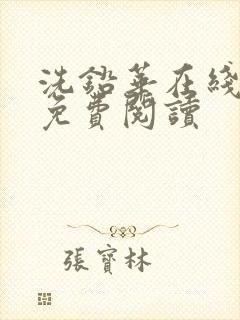 洗鉛華在綫
免費閱讀
張寶林